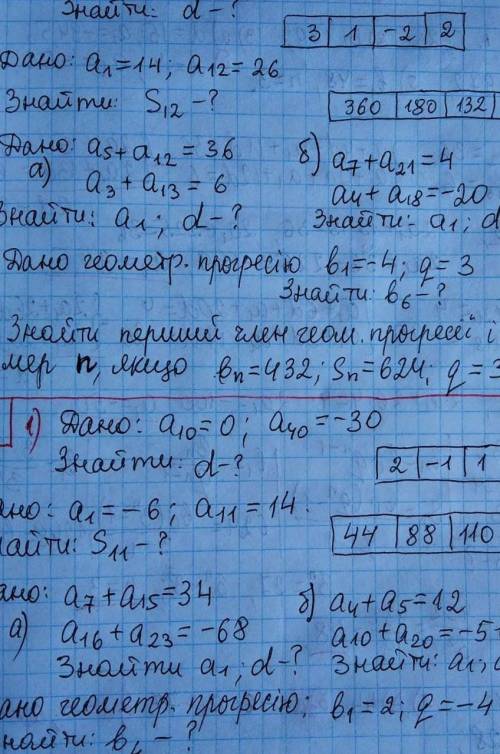 Знайти: d - ?
3 1 -2 2
Дано: a₁=14; a₁₂=26
Знайти: S₁₂ - ?
360 180 132
Дано: a₅+a₁₂=36
а)
a₃+a₁₃=6
Знайти: a₁; d - ?
б) a₇+a₂₁=4
a₄+a₁₈=-20
Знайти: a₁; d
Дано геометр. прогресію b₁=-4; q=3
Знайти: b₆ - ?
Знайти перший член геом. прогресії і
мер n, якщо bₙ=432; Sₙ=624; q=3
1) Дано: a₁₀=0; a₄₀=-30
Знайти: d - ?
2 -1 1
ано: a₁=-6; a₁₁=14
найти: S₁₁ - ?
44 88 110
ано: a₇+a₁₅=34
а) a₁₆+a₂₃=-68
Знайти a₁; d - ?
б) a₄+a₅=12
a₁₀+a₂₀=-5
Знайти: a₁;
ано геометр. прогресію; b₁=2; q=-4
найти: b - ?